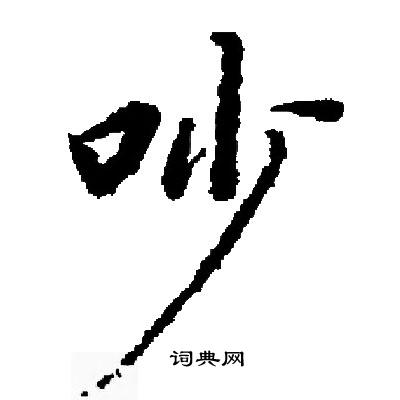 吵
词典网